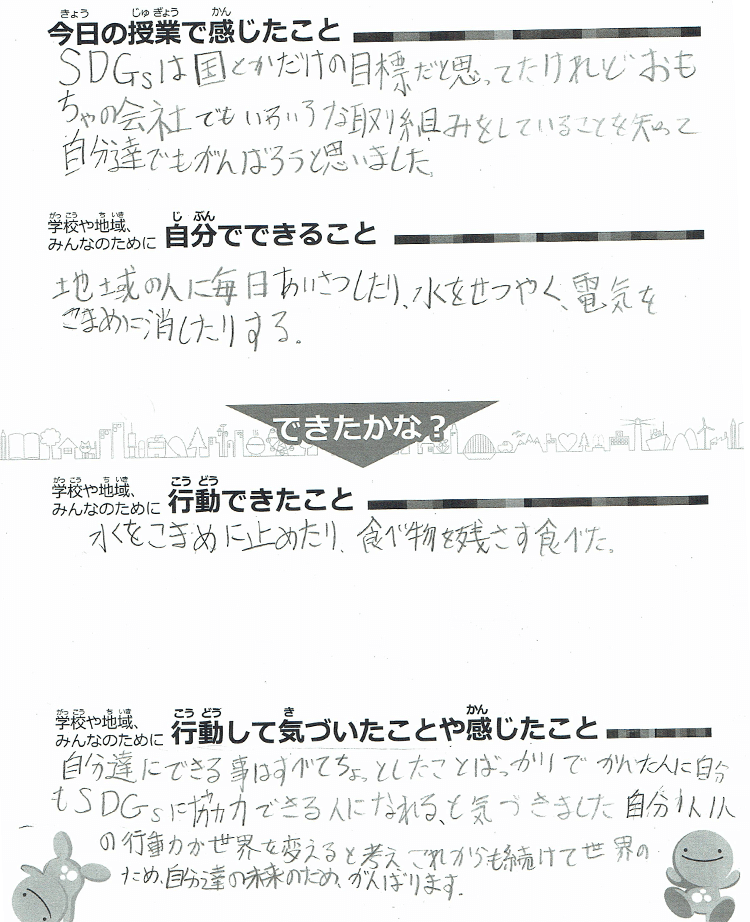 今日の授業で感じたこと
SDGsは国とかだけの目標だと思ってたけれど おも
ちゃの会社でもいろいろな取り組みをしていることを知って
自分達でもがんばろうと思いました。
学校や地域、
みんなのために 自分でできること
地域の人に毎日あいさつしたり、水をせつやく、電気を
こまめに消したりする。
できたかな？
学校や地域、
みんなのために 行動できたこと
水をこまめに止めたり、食べ物を残さす食べた。
学校や地域、
みんなのために 行動して気づいたことや感じたこと
自分達にできる事はすべてちょっとしたことばっかりで かんたんに自分
もSDGsに協力できる人になれる、と気づきました 自分1人1人
の行動力が世界を変えると考え これからも続けて世界の
ため、自分達の未来のため、がんばります。